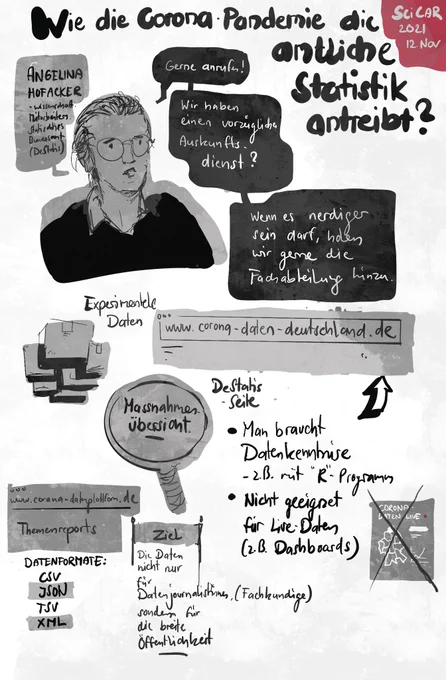 Wie die Corona-Pandemie die
amtliche
Statistik
antreibt?
SciCAR
2021
12. Nov
ANGELINA
HOFACKER
Statistisches
Bundesamt
(DeStatis)
Gerne anrufen!
Wir haben
einen vorzügliche
Auskunfts-
dienst?
Wenn es nerdiger
sein darf, holen
wir gerne die
Fachabteilung hinzu.
Experimentelle
Daten
www.corona-daten-deutschland.de
Massnahmen
übersicht
DeStatis
-Seite
• Man braucht
Datenkenntnise
- z.B. mit "R"-Programm
• Nicht geeignet
für Live-Daten
(z.B. Dashboards)
CORONA-
DATEN LIVE
www.corona-datenplattform.de
Themenreports
DATENFORMATE:
CSV
JSON
TSV
XML
Ziel
Die Daten
nicht nur
für
Datenjournalistinnen, (Fachkundige)
sondern für
die breite
Öffentlichkeit